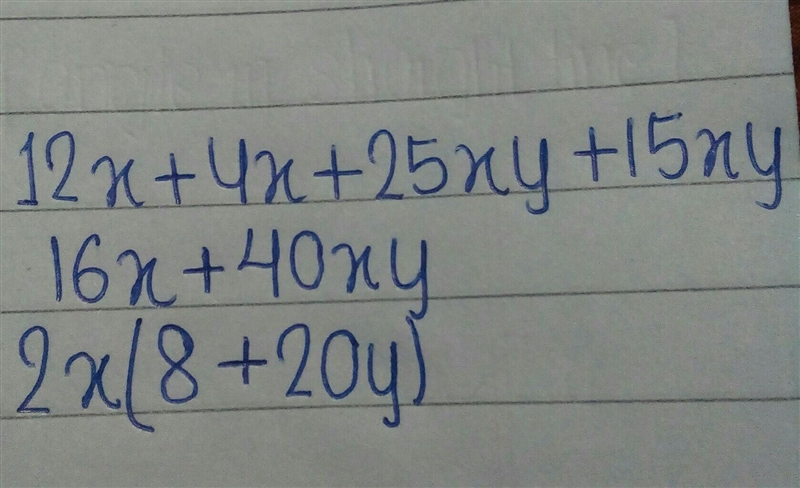 12x+4x+25xy+15xy
16x+40xy
2x(8+20y)